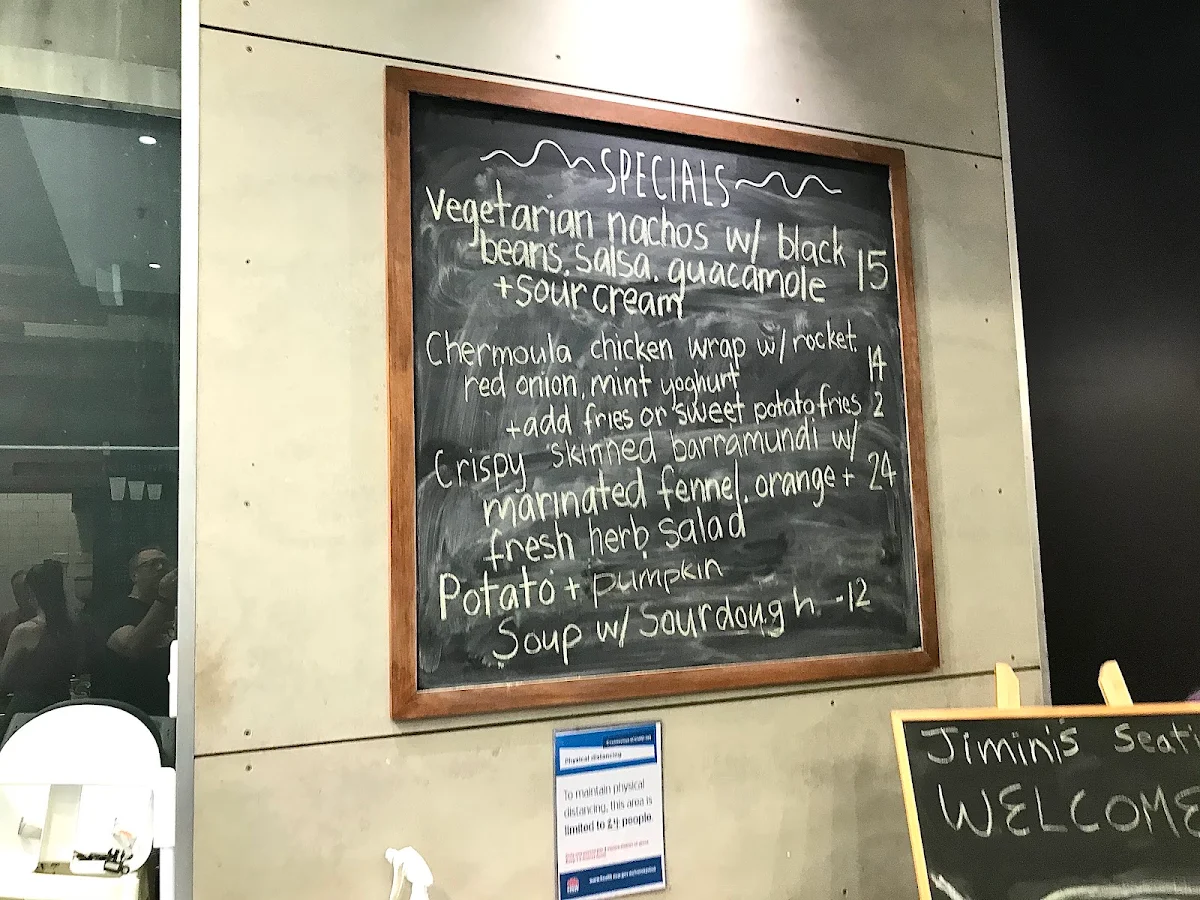 SPECIALS
Vegetarian nachos w/ black
beans, salsa, guacamole 15
+ sour cream
Chermoula chicken wrap w/ rocket,
red onion, mint yoghurt 14
+ add fries or sweet potato fries 2
Crispy skinned barramundi w/
marinated fennel, orange + 24
fresh herb salad
Potato + pumpkin
Soup w/ Sourdough -12
Physical distancing
To maintain physical
distancing, this area is
limited to 24 people.
Jimini's Seati
WELCOME